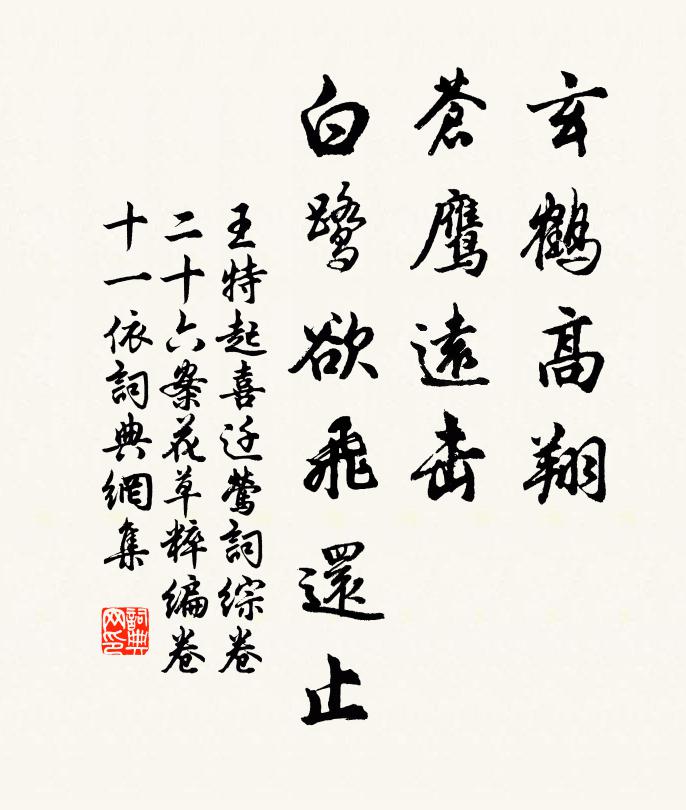 玄鶴高翔
蒼鹰遠击
白鹭欲飛還止
王特起喜迁鶯詞综卷
二十六案花草粹编卷
十一依詞典網集
詞典网印